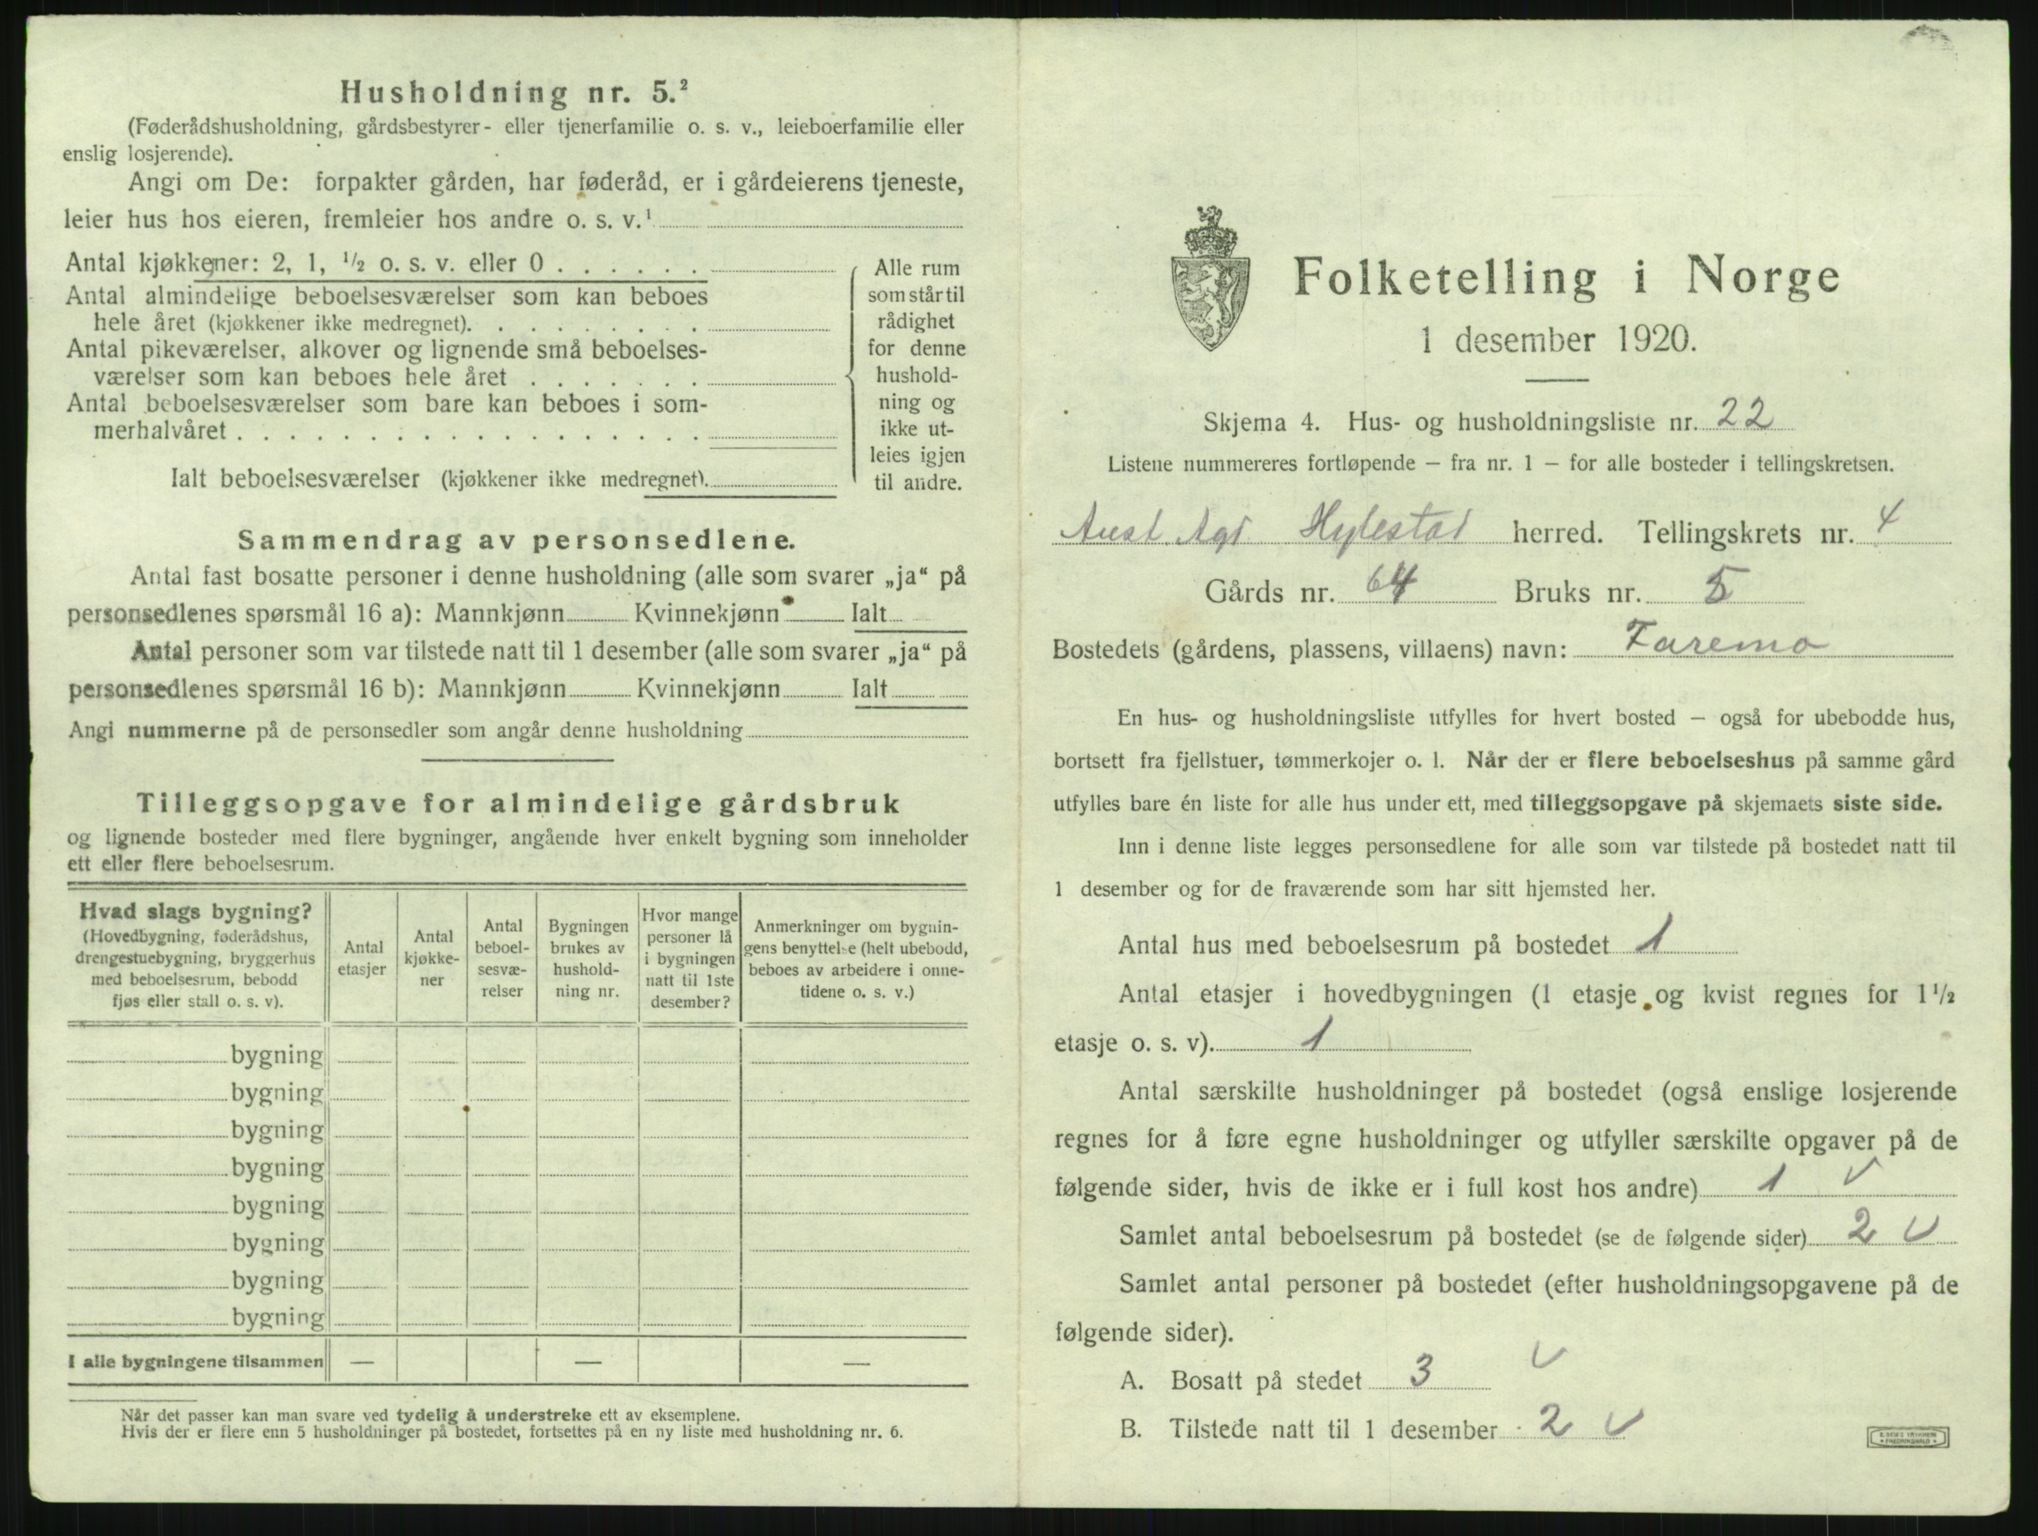 Husholdning nr. 5.²
(Føderådshusholdning, gårdsbestyrer- eller tjenerfamilie o. s. v., leieboerfamilie eller
enslig losjerende).
Angi om De: forpakter gården, har føderåd, er i gårdeierens tjeneste,
leier hus hos eieren, fremleier hos andre o. s. v.¹
Antal kjøkkener: 2, 1, ½ o. s. v. eller 0 . . . . . .
Antal almindelige beboelsesværelser som kan beboes
hele året (kjøkkener ikke medregnet). . . . . . . . .
Antal pikeværelser, alkover og lignende små beboelses-
værelser som kan beboes hele året . . . . . . .
Antal beboelsesværelser som bare kan beboes i som-
merhalvåret . . . . . . . . . . . . . . . . . .
Ialt beboelsesværelser (kjøkkener ikke medregnet).
Alle rum
som står til
rådighet
for denne
hushold-
ning og
ikke ut-
leies igjen
til andre.
Sammendrag av personsedlene.
Antal fast bosatte personer i denne husholdning (alle som svarer „ja“ på
personsedlenes spørsmål 16 a): Mannkjønn Kvinnekjønn Ialt
Antal personer som var tilstede natt til 1 desember (alle som svarer „ja“ på
personsedlenes spørsmål 16 b): Mannkjønn Kvinnekjønn Ialt
Angi nummerne på de personsedler som angår denne husholdning
Tilleggsopgave for almindelige gårdsbruk
og lignende bosteder med flere bygninger, angående hver enkelt bygning som inneholder
ett eller flere beboelsesrum.
Hvad slags bygning?
(Hovedbygning, føderådshus,
drengestuebygning, bryggerhus
med beboelsesrum, bebodd
fjøs eller stall o. s. v).
Antal
etasjer
Antal
kjøkke-
ner
Antal
beboel-
sesvæ-
relser
Bygningen
brukes av
hushold-
ning nr.
Hvor mange
personer lå
i bygningen
natt til 1ste
desember?
Anmerkninger om bygnin-
gens benyttelse (helt ubebodd,
beboes av arbeidere i onne-
tidene o. s. v.)
bygning
bygning
bygning
bygning
bygning
bygning
bygning
bygning
I alle bygningene tilsammen — — —
Når det passer kan man svare ved tydelig å understreke ett av eksemplene.
Hvis der er flere enn 5 husholdninger på bostedet, fortsettes på en ny liste med husholdning nr. 6.
Folketelling i Norge
1 desember 1920.
Skjema 4. Hus- og husholdningsliste nr. 22
Listene nummereres fortløpende — fra nr. 1 — for alle bosteder i tellingskretsen.
Aust Agd. Hylestad herred. Tellingskrets nr. 4
Gårds nr. 64 Bruks nr. 5
Bostedets (gårdens, plassens, villaens) navn: Faremo
En hus- og husholdningsliste utfylles for hvert bosted — også for ubebodde hus,
bortsett fra fjellstuer, tømmerkojer o. l. Når der er flere beboelseshus på samme gård
utfylles bare én liste for alle hus under ett, med tilleggsopgave på skjemaets siste side.
Inn i denne liste legges personsedlene for alle som var tilstede på bostedet natt til
1 desember og for de fraværende som har sitt hjemsted her.
Antal hus med beboelsesrum på bostedet 1
Antal etasjer i hovedbygningen (1 etasje og kvist regnes for 1½
etasje o. s. v). 1
Antal særskilte husholdninger på bostedet (også enslige losjerende
regnes for å føre egne husholdninger og utfyller særskilte opgaver på de
følgende sider, hvis de ikke er i full kost hos andre) 1 ✓
Samlet antal beboelsesrum på bostedet (se de følgende sider) 2 ✓
Samlet antal personer på bostedet (efter husholdningsopgavene på de
følgende sider).
A. Bosatt på stedet 3 ✓
B. Tilstede natt til 1 desember 2 ✓